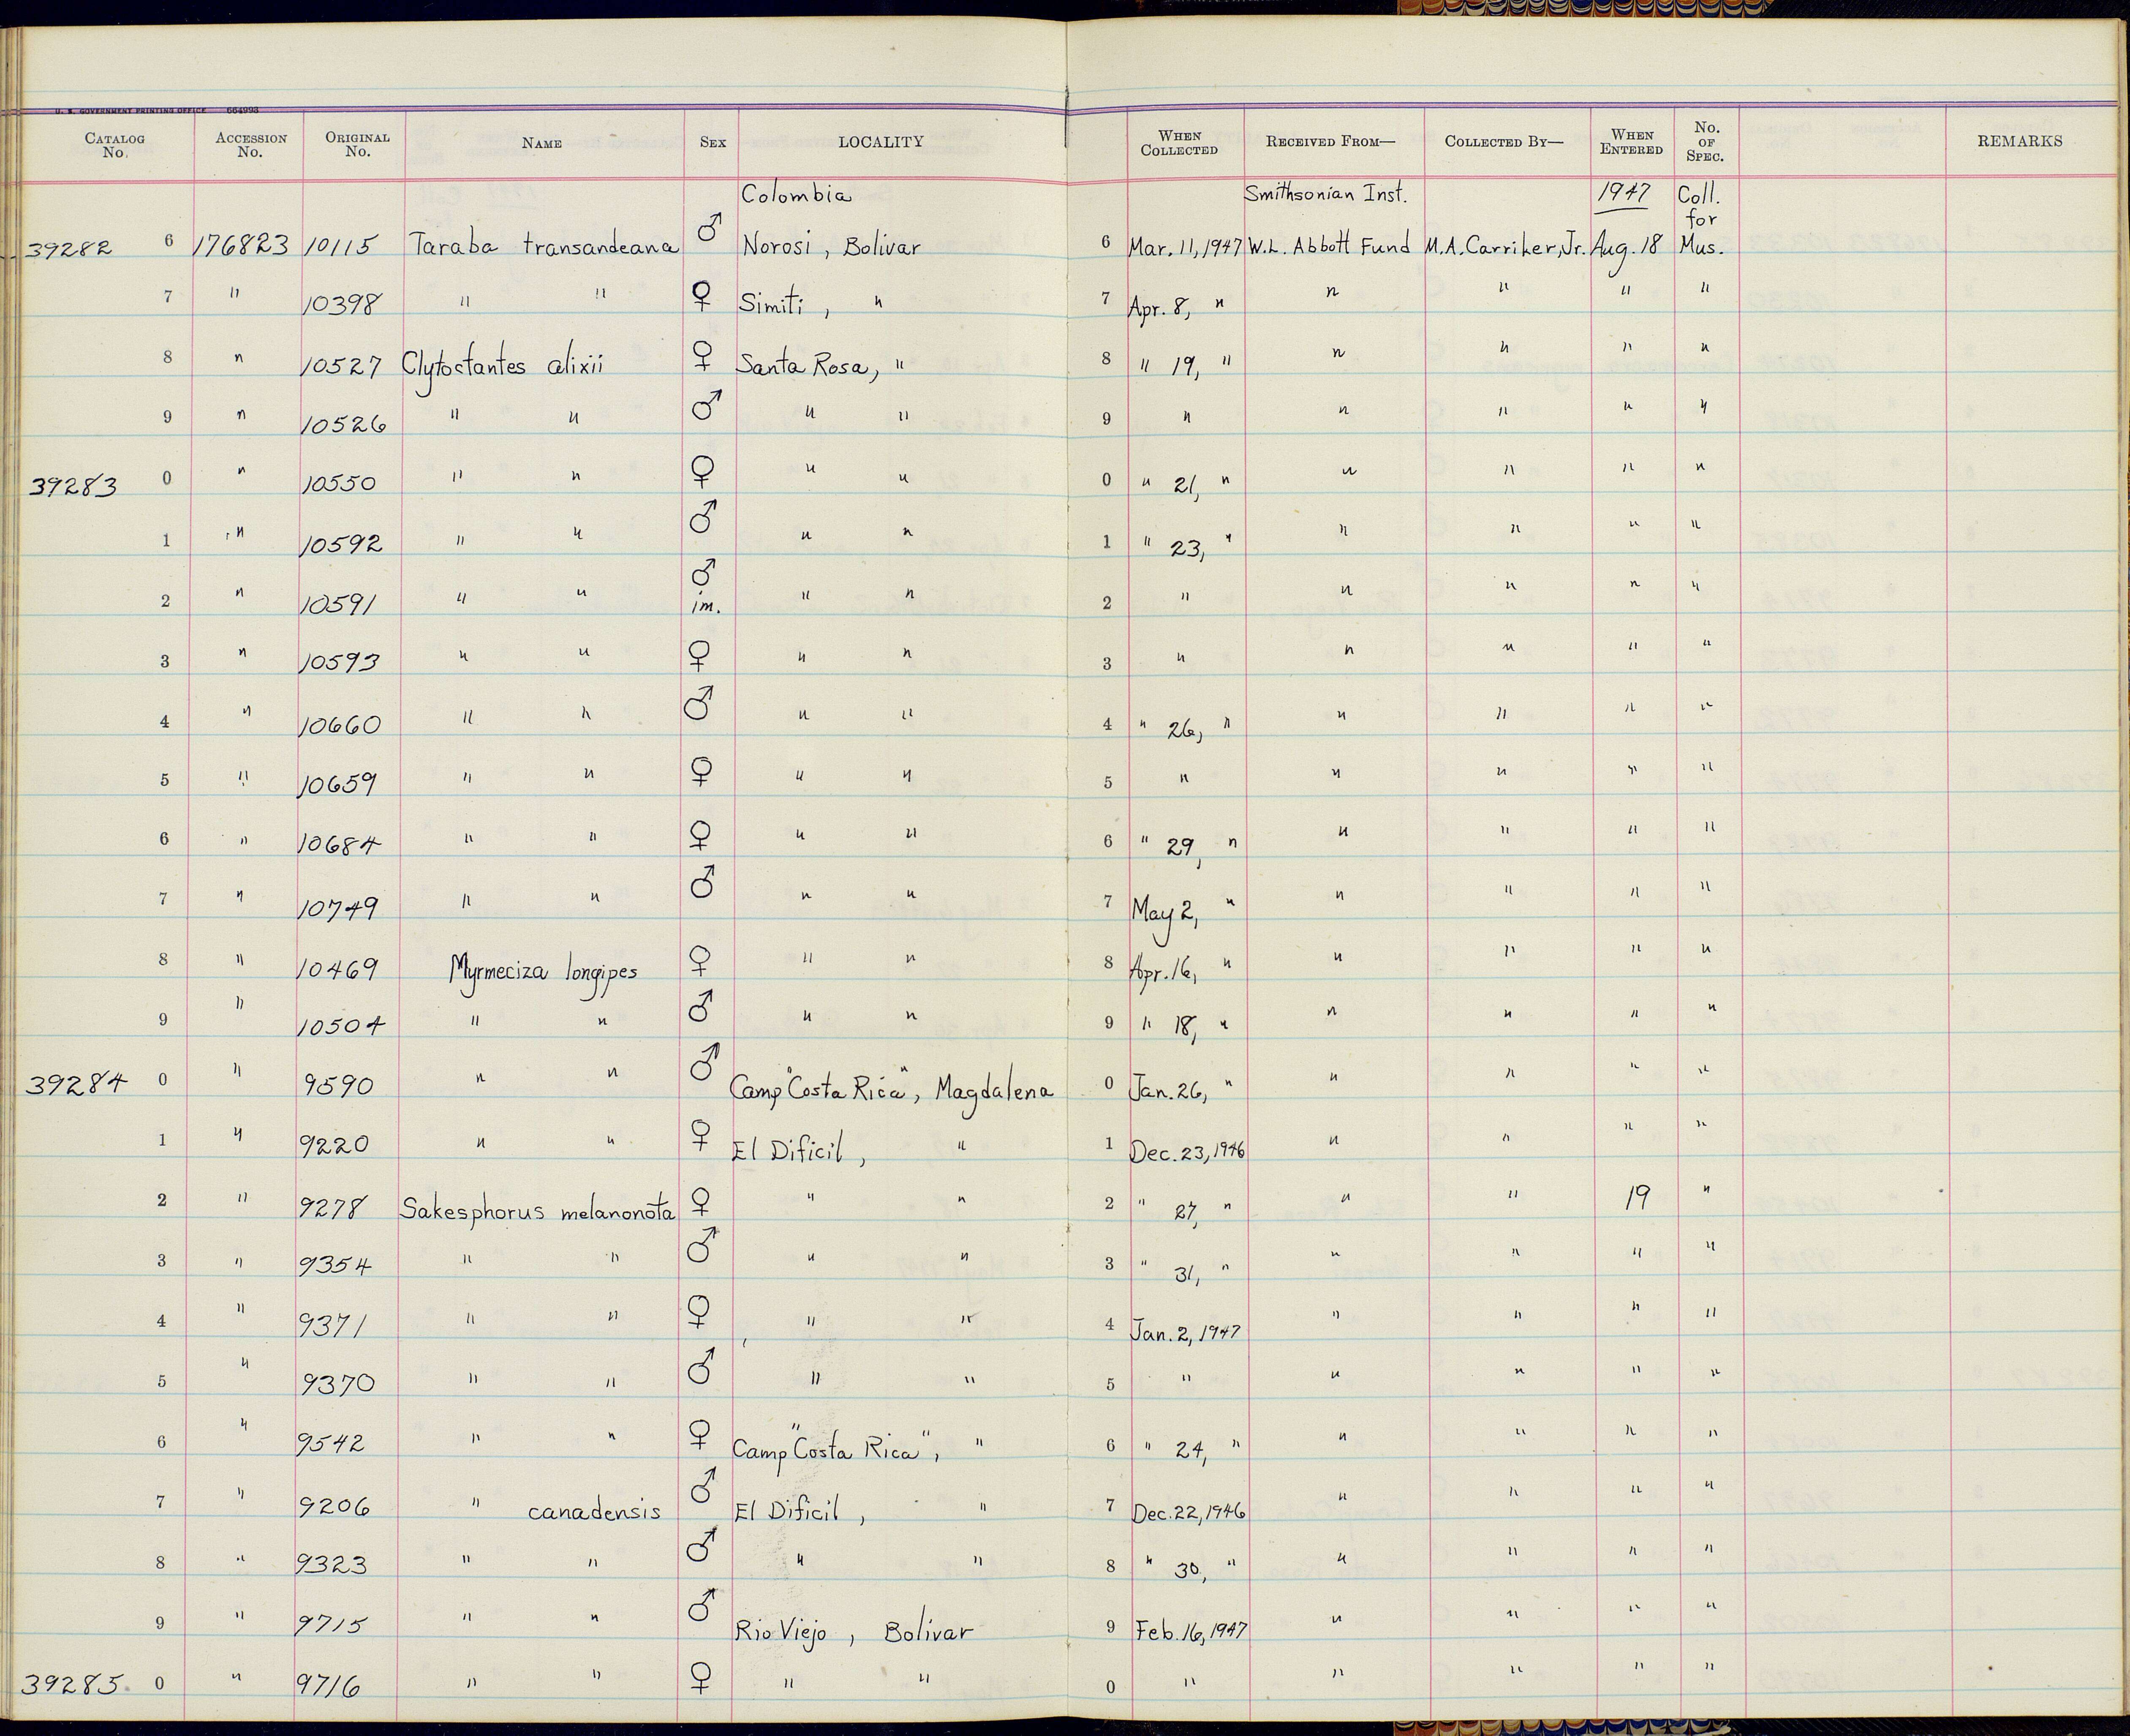 U. S. GOVERNMENT PRINTING OFFICE 664998
CATALOG No. ACCESSION No. ORIGINAL No. NAME SEX LOCALITY WHEN COLLECTED RECEIVED FROM— COLLECTED BY— WHEN ENTERED No. OF SPEC. REMARKS
Colombia Smithsonian Inst. 1947 Coll. for
39282 6 176823 10115 Taraba transandeana ♂ Norosi, Bolivar 6 Mar. 11, 1947 W.L. Abbott Fund M.A. Carriker, Jr. Aug. 18 Mus.
7 " 10398 " " ♀ Simiti, " 7 Apr. 8, " " " " "
8 " 10527 Clytoctantes alixii ♀ Santa Rosa, " 8 " 19, " " " " "
9 " 10526 " " ♂ " " 9 " " " " "
39283 0 " 10550 " " ♀ " " 0 " 21, " " " " "
1 " 10592 " " ♂ " " 1 " 23, " " " " "
2 " 10591 " " ♂ im. " " 2 " " " " "
3 " 10593 " " ♀ " " 3 " " " " "
4 " 10660 " " ♂ " " 4 " 26, " " " " "
5 " 10659 " " ♀ " " 5 " " " " "
6 " 10684 " " ♀ " " 6 " 29, " " " " "
7 " 10749 " " ♂ " " 7 May 2, " " " " "
8 " 10469 Myrmeciza longipes ♀ " " 8 Apr. 16, " " " " "
9 " 10504 " " ♂ " " 9 " 18, " " " " "
39284 0 " 9590 " " ♂ Camp "Costa Rica", Magdalena 0 Jan. 26, " " " " "
1 " 9220 " " ♀ El Dificil, " 1 Dec. 23, 1946 " " " "
2 " 9278 Sakesphorus melanonota ♀ " " 2 " 27, " " " 19 "
3 " 9354 " " ♂ " " 3 " 31, " " " " "
4 " 9371 " " ♀ " " 4 Jan. 2, 1947 " " " "
5 " 9370 " " ♂ " " 5 " " " " "
6 " 9542 " " ♀ Camp "Costa Rica", " 6 " 24, " " " " "
7 " 9206 " canadensis ♂ El Dificil, " 7 Dec. 22, 1946 " " " "
8 " 9323 " " ♂ " " 8 " 30, " " " " "
9 " 9715 " " ♂ Rio Viejo, Bolivar 9 Feb. 16, 1947 " " " "
39285. 0 " 9716 " " ♀ " " 0 " " " " "